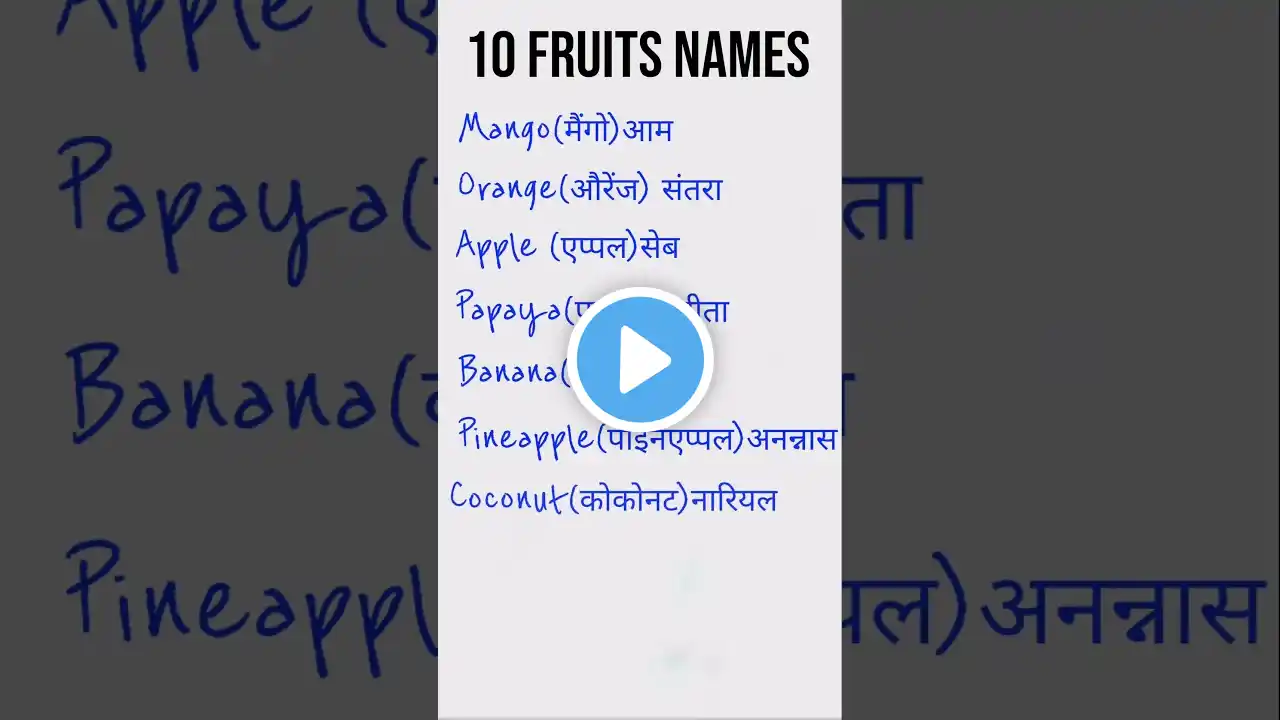 10 FRUITS NAMES
Mango(मैंगो)आम
Orange(औरेंज) संतरा
Apple (एप्पल)सेब
Papaya(
Banana(
Pineapple(पाइनएप्पल)अनन्नास
Coconut(कोकोनट)नारियल